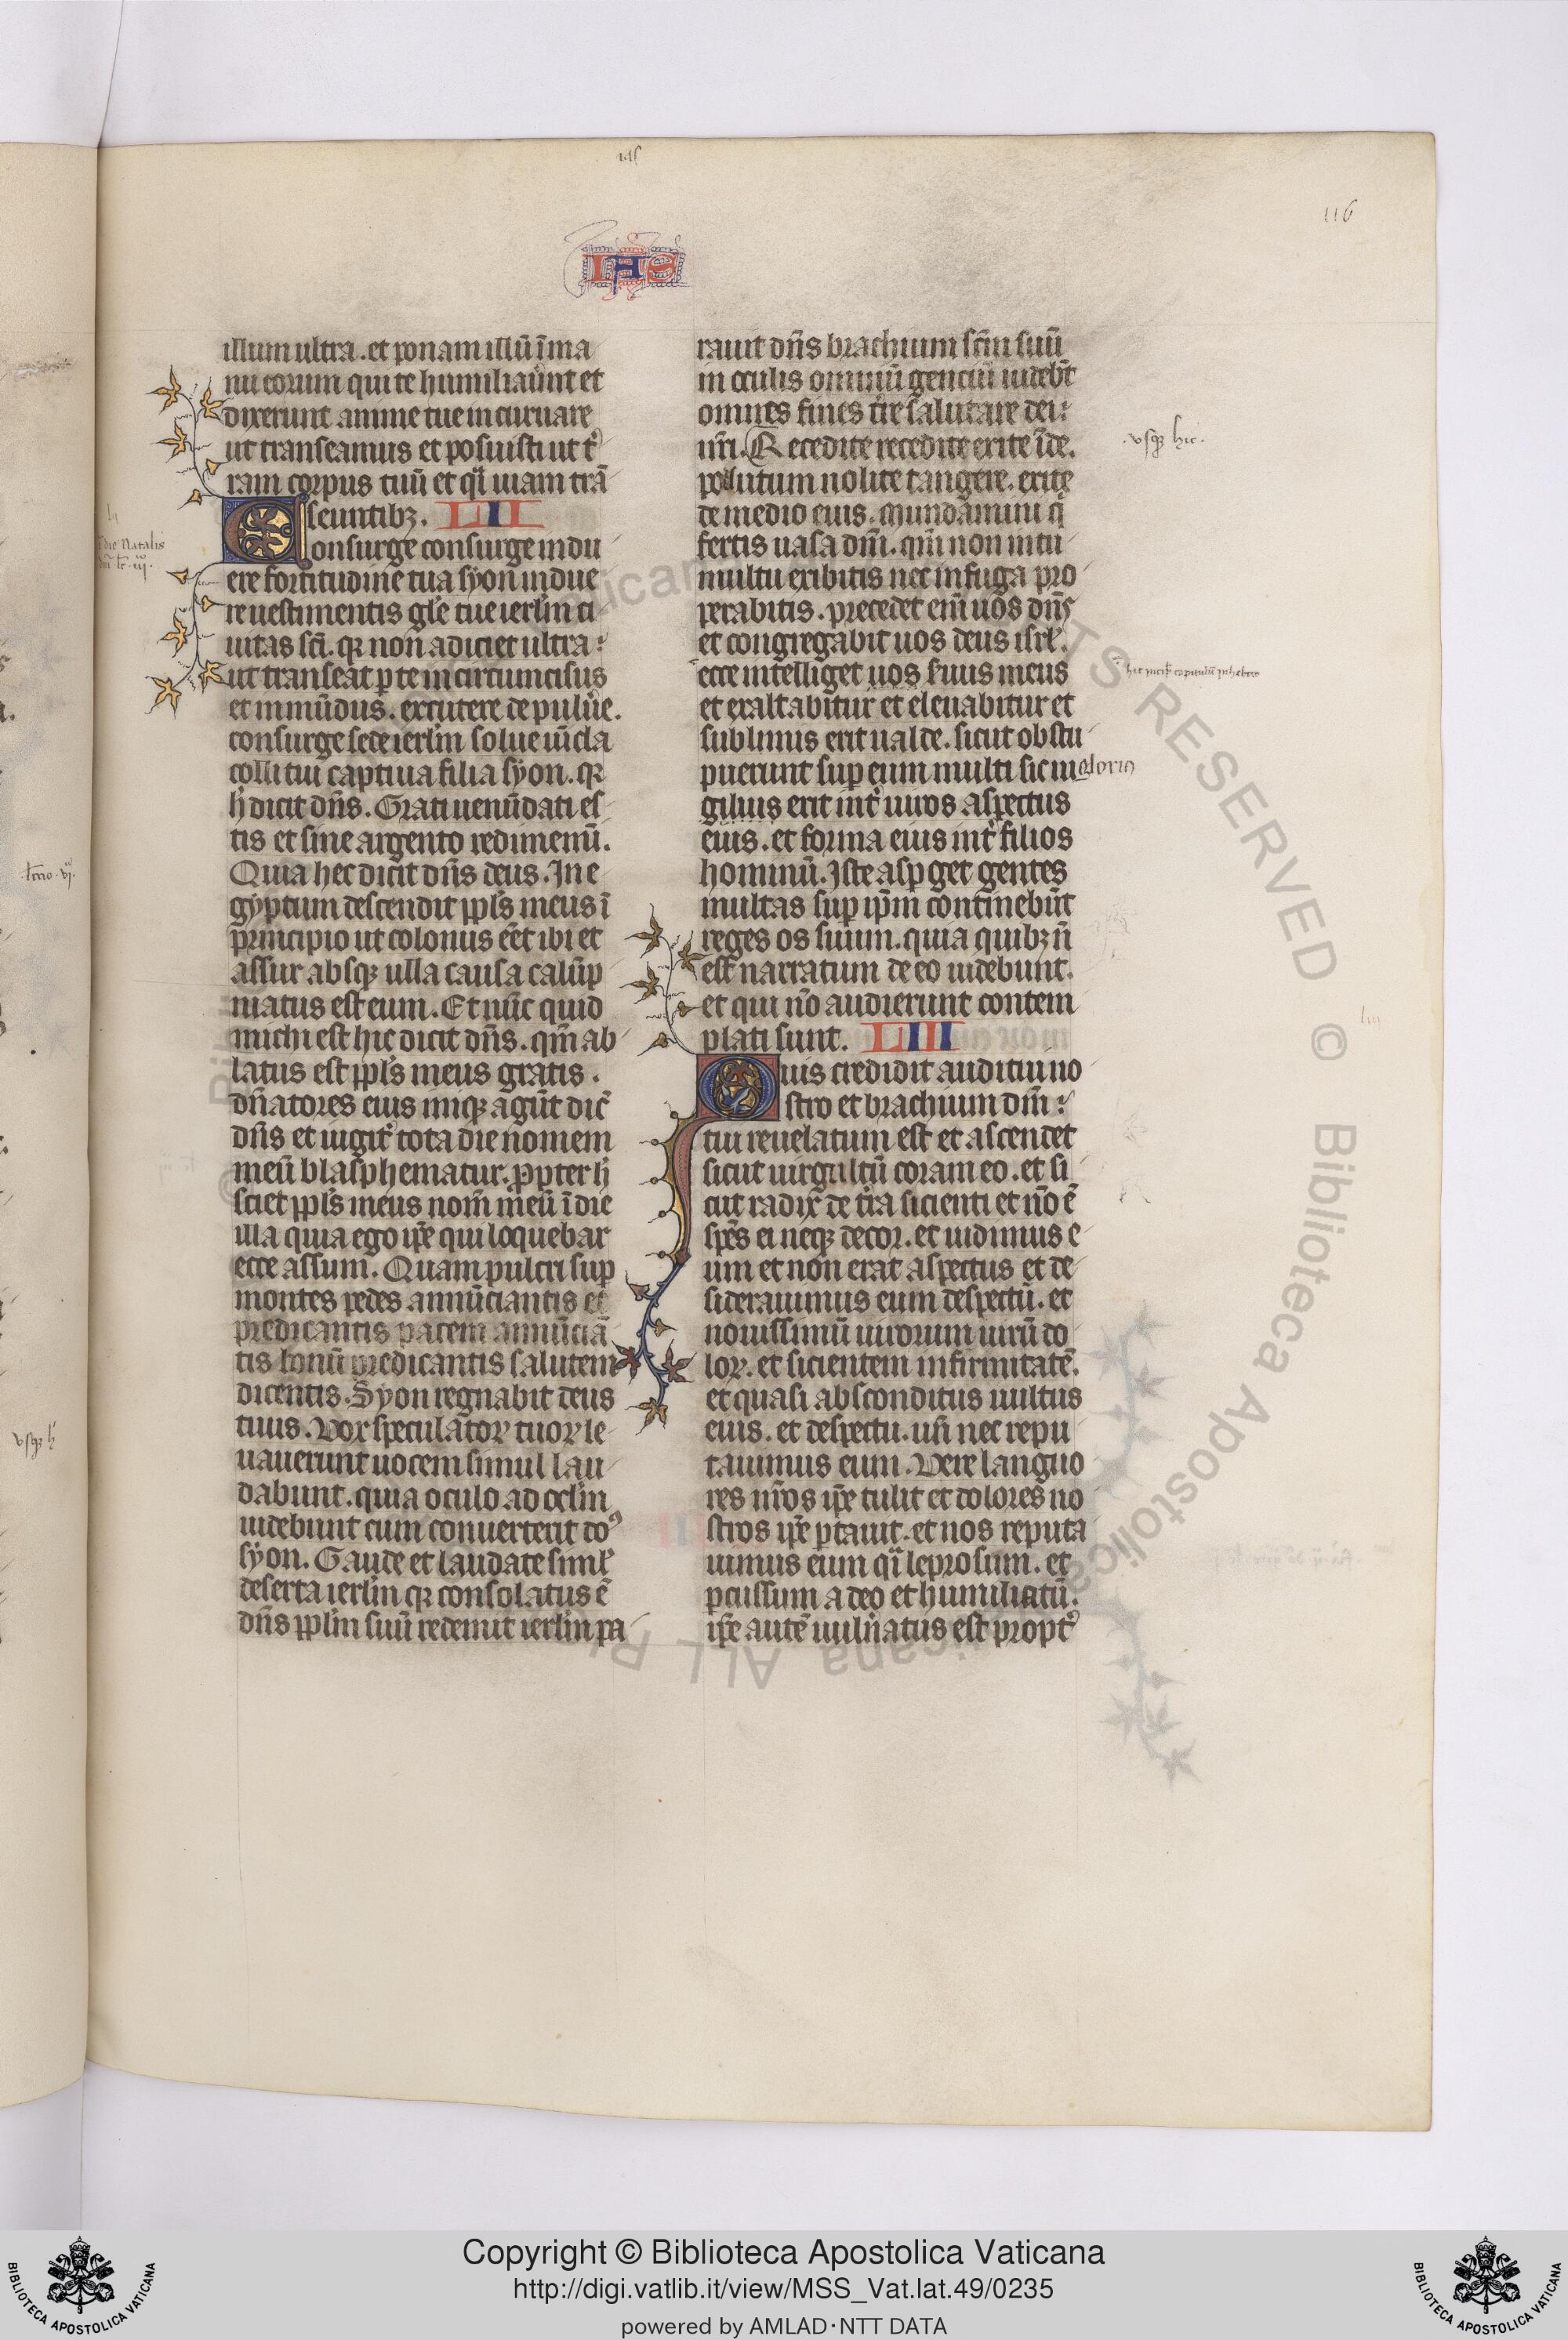 ias
116
IAS
illum ultra. et ponam illū ī ma
nu eorum qui te humiliaūnt et
dixerunt anime tue incuruare
ut transeamus et posuisti ut t͛
ram corpus tuū et q̄i uiam trā
seuntibꝫ. LII
Consurge consurge indu
ere fortitudine tua syon indue
re uestimentis gl̄e tue ierl̄m ci
uitas sc̄i. qꝛ non adiciet ultra:
ut transeat ꝑ te incircuncisus
et inmūdus. excutere de puluͤe.
consurge sede ierl̄m solue uīcla
colli tui captiua filia syon. qꝛ
h̄ dicit dn̄s. Grati uenūdati es
tis et sine argento redimemī.
Quia hec dicit dn̄s deus. In e
gyptum descendit ppl̄s meus ī
principio ut colonus eēt ibi et
assur absqꝫ ulla causa calūp
niatus est eum. Et nūc quid
michi est hic dicit dn̄s. qm̄ ab
latus est ppl̄s meus gratis.
dn̄atores eius iniqꝫ agūt dic̄
dn̄s et iugit͛ tota die nomem
meū blasphematur. Ꝓpter h̄
sciet ppl̄s meus nom̄ meū ī die
illa quia ego ip̄e qui loquebar
ecce assum. Quam pulcri suꝑ
montes pedes annūciantis et
predicantis pacem annūciā
tis bonū predicantis salutem
dicentis. Syon regnabit deus
tuus. Vox speculātoꝝ tuoꝝ le
uauerunt uocem simul lau
dabunt. quia oculo ad ocl̄m
uidebunt cum conuerterit doꝰ
syon. Gaude et laudate simł
deserta ierl̄m qꝛ consolatus ē
dn̄s ppl̄m suū redemit ierl̄m pa
rauit dn̄s brachium sc̄m suū
in oculis omniū genciū uidebt̄
omnes fines t̄re salutare dei:
nr̄i. Recedite recedite exite īde.
polutum nolite tangere. exite
de medio eius. mundamini q̄
fertis uasa dn̄i. qm̄ non in tu
multu exibitis nec in fuga pro
perabitis. precedet em̄ uos dn̄s
et congregabit uos deus isrł.
ecce intelliget uos s̄uus meus
et exaltabitur et eleuabitur et
sublimis erit ualde. sicut obstu
puerunt suꝑ eum multi sic in
glorius
gilius erit int͛ uiros aspectus
eius. et forma eius int͛ filios
hominū. Iste aspget gentes
multas suꝑ ip̄m continebūt
reges os suum. quia quibꝫ n̄
est narratum de eo uidebunt.
et qui nō audierunt contem
plati sunt. LIII
Quis credidit auditui no
stro et brachium dn̄i:
tui reuelatum est et ascendet
sicut uirgultū coram eo. et si
cut radix de t̄ra sicienti et nō ē
spēs ei neqꝫ decor. et uidimus e
um et non erat aspectus et de
siderauimus eum despectū. et
nouissimū uirorum uirū do
loꝝ. et sicientem infirmitatē.
et quasi absconditus uultus
eius. et despectu. un̄ nec repu
tauimus eum. Vere languo
res nr̄os ip̄e tulit et dolores no
stros ip̄e ꝑtauit. et nos reputa
uimus eum q̄i leprosum. et
ꝑcussum a deo et humiliatū.
ip̄e autē uuln̄atus est propt͛
.vsqꝫ hic.
die natalis
vsqꝫ h
RESERVED © Biblioteca Apostolica
Copyright © Biblioteca Apostolica Vaticana
http://digi.vatlib.it/view/MSS_Vat.lat.49/0235
powered by AMLAD·NTT DATA
BIBLIOTECA APOSTOLICA VATICANA
BIBLIOTECA APOSTOLICA VATICANA